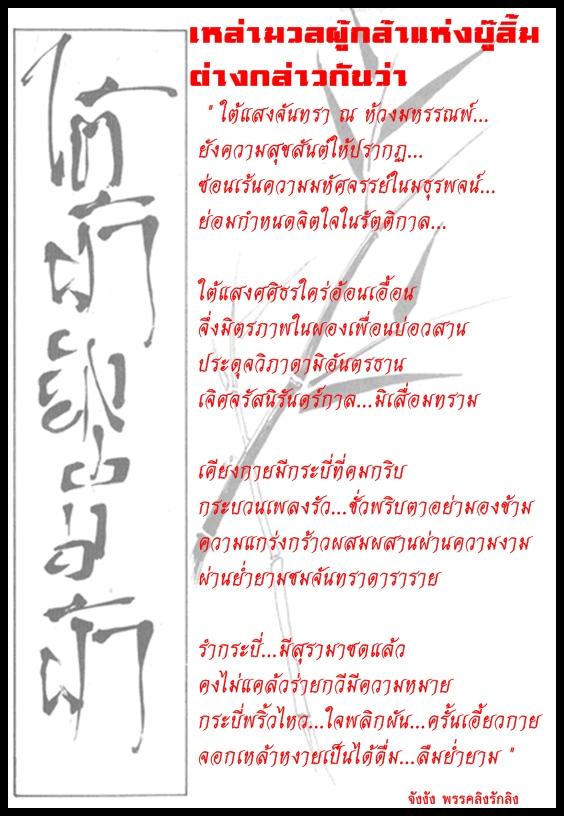 ใต้
ฟ้า
เหล่ามวลผู้กล้าแห่งบู๊ลิ้ม
ต่างกล่าวกันว่า
" ใต้แสงจันทรา ณ ห้วงมหรรณพ์...
ยังความสุขสันต์ให้ปรากฏ...
ซ่อนเร้นความมหัศจรรย์ในมธุรพจน์...
ย่อมกำหนดจิตใจในรัตติกาล...
ใต้แสงศศิธรใคร่อ้อนเอื้อน
จึ่งมิตรภาพในผองเพื่อนบ่อวสาน
ประดุจวิภาดามิอันตรธาน
เจิศจรัสนิรันดร์กาล...มิเสื่อมทราม
เคียงกายมีกระบี่ที่คมกริบ
กระบวนเพลงรัว...ชั่วพริบตาอย่ามองข้าม
ความแกร่งกร้าวผสมผสานผ่านความงาม
ผ่านย่ำยามชมจันทราดาราราย
รำกระบี่...มีสุรามาซดแล้ว
คงไม่แคล้วร่ายกวีมีความหมาย
กระบี่พริ้วไหว...ใจพลิกผัน...ครั้นเอี้ยวกาย
จอกเหล้าหงายเป็นได้ดื่ม...ลืมย่ำยาม "
จังงัง พรรคลิงรักลิง